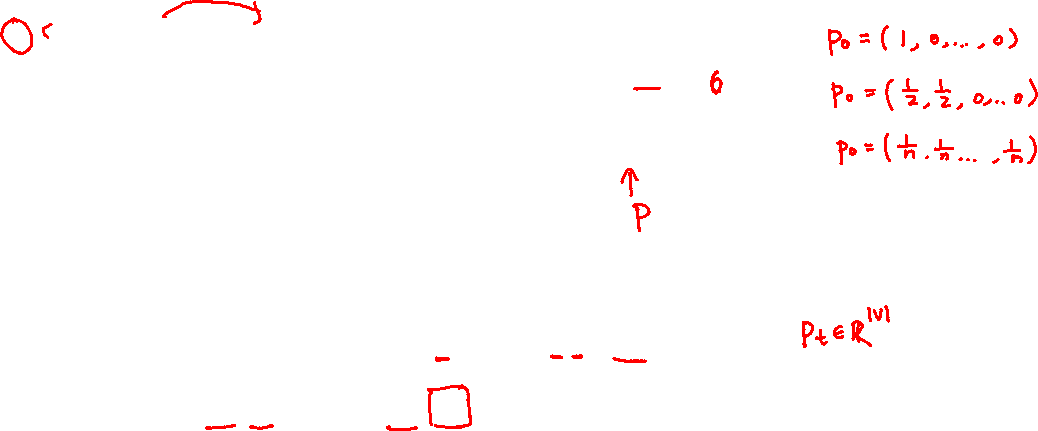 p₀ = (1, 0, ..., 0)
6
p₀ = (1/2, 1/2, 0, ... 0)
p₀ = (1/n, 1/n ..., 1/n)
P
P_t ∈ ℝ^|V|